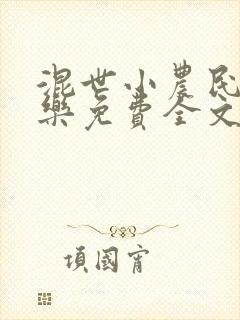 混世小農民
樂免費全文
項國宵